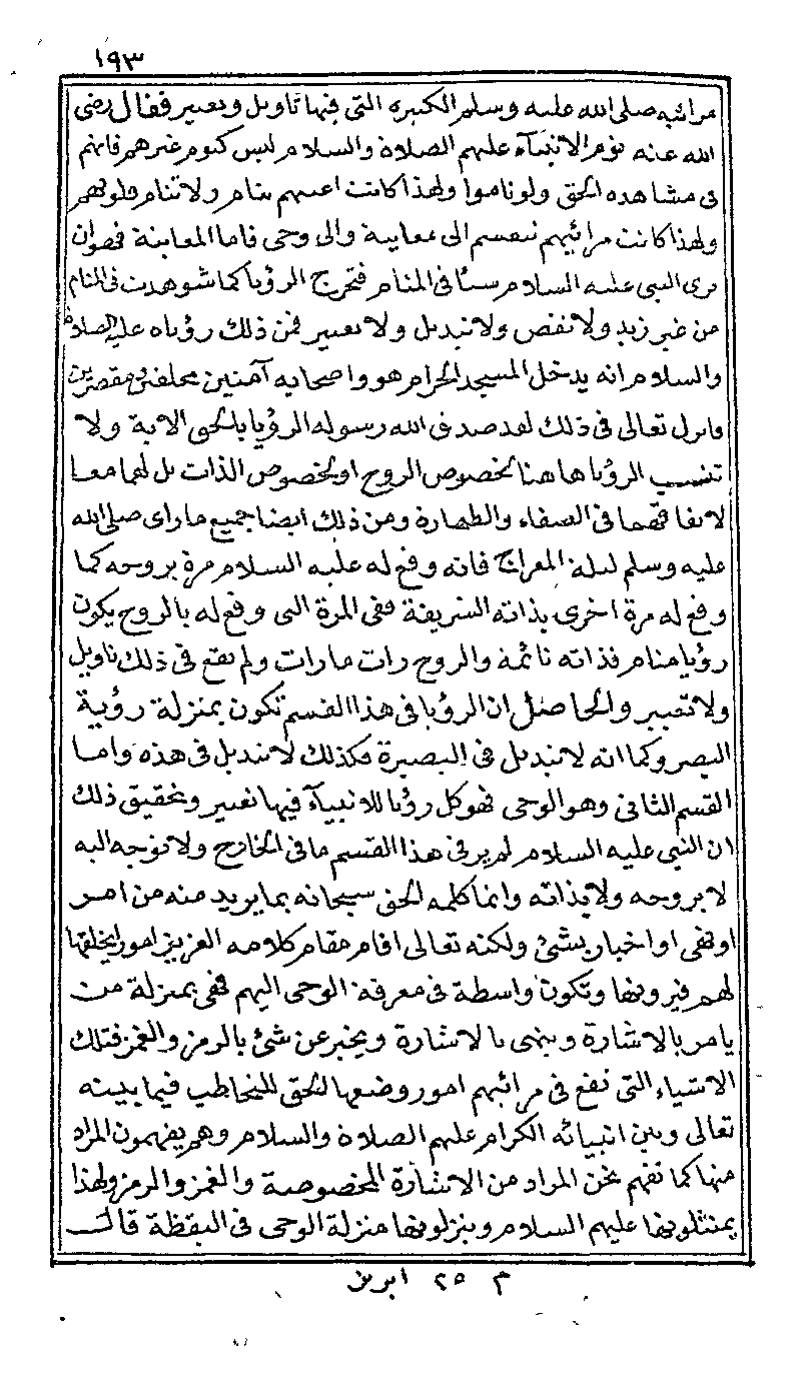 ١٩٣
مرائيه صلى الله عليه وسلم الكثيرة التى فيها تاويل وتعبير فقال رضى
الله عنه نوم الانبيآء عليهم الصلاة والسلام ليس كنوم غيرهم فانهم
فى مشاهدة الحق ولو ناموا ولهذا كانت اعينهم تنام ولا تنام قلوبهم
ولهذا كانت مرائيهم تنقسم الى معاينة والى وحى فاما المعاينة فهو ان
يرى النبى عليه السلام شيئا فى المنام فتخرج الرؤيا كما شوهدت فى المنام
من غير زيد ولا نقص ولا تبديل ولا تعبير فمن ذلك رؤياه عليه الصلاة
والسلام انه يدخل المسجد الحرام هو واصحابه آمنين محلقين ومقصرين
وانزل تعالى فى ذلك لقد صدق الله رسوله الرؤيا بالحق الاية ولا
تنسب الرؤيا هاهنا لخصوص الروح او لخصوص الذات بل لهما معا
لاتفاقهما فى الصفاء والطهارة ومن ذلك ايضا جميع ما راى صلى الله
عليه وسلم ليلة المعراج فانه وقع له عليه السلام مرة بروحه كما
وقع له مرة اخرى بذاته الشريفة ففى المرة التى وقع له بالروح يكون
رؤيا منام فذاته نائمة والروح رات ما رات ولم يقع فى ذلك تاويل
ولا تعبير والحاصل ان الرؤيا فى هذا القسم تكون بمنزلة رؤية
البصر وكما انه لا تبديل فى البصيرة فكذلك لا تبديل فى هذه واما
القسم الثانى وهو الوحى فهو كل رؤيا للانبيآء فيها تعبير وتحقيق ذلك
ان النبي عليه السلام لم ير فى هذا القسم ما فى الخارج ولا توجه اليه
لا بروحه ولا بذاته وانما كلمه الحق سبحانه بما يريد منه من امر
او نهى او اخبار بشئ ولكنه تعالى اقام مقام كلامه العزيز امورا يخلقها
لهم فيرونها وتكون واسطة فى معرفة الوحى اليهم فهى بمنزلة من
يامر بالاشارة وينهى بالاشارة ويخبر عن شئ بالرمز والغمز فتلك
الاشياء التى تقع فى مرائيهم امور وضعها الحق للتخاطب فيما بينه
تعالى وبين انبيائه الكرام عليهم الصلاة والسلام وهم يفهمون المراد
منها كما نفهم نحن المراد من الاشارة المخصوصة والغمز والرمز ولهذا
يمتثلونها عليهم السلام وينزلونها منزلة الوحى فى اليقظة قالت
م ٢٥ ابريز